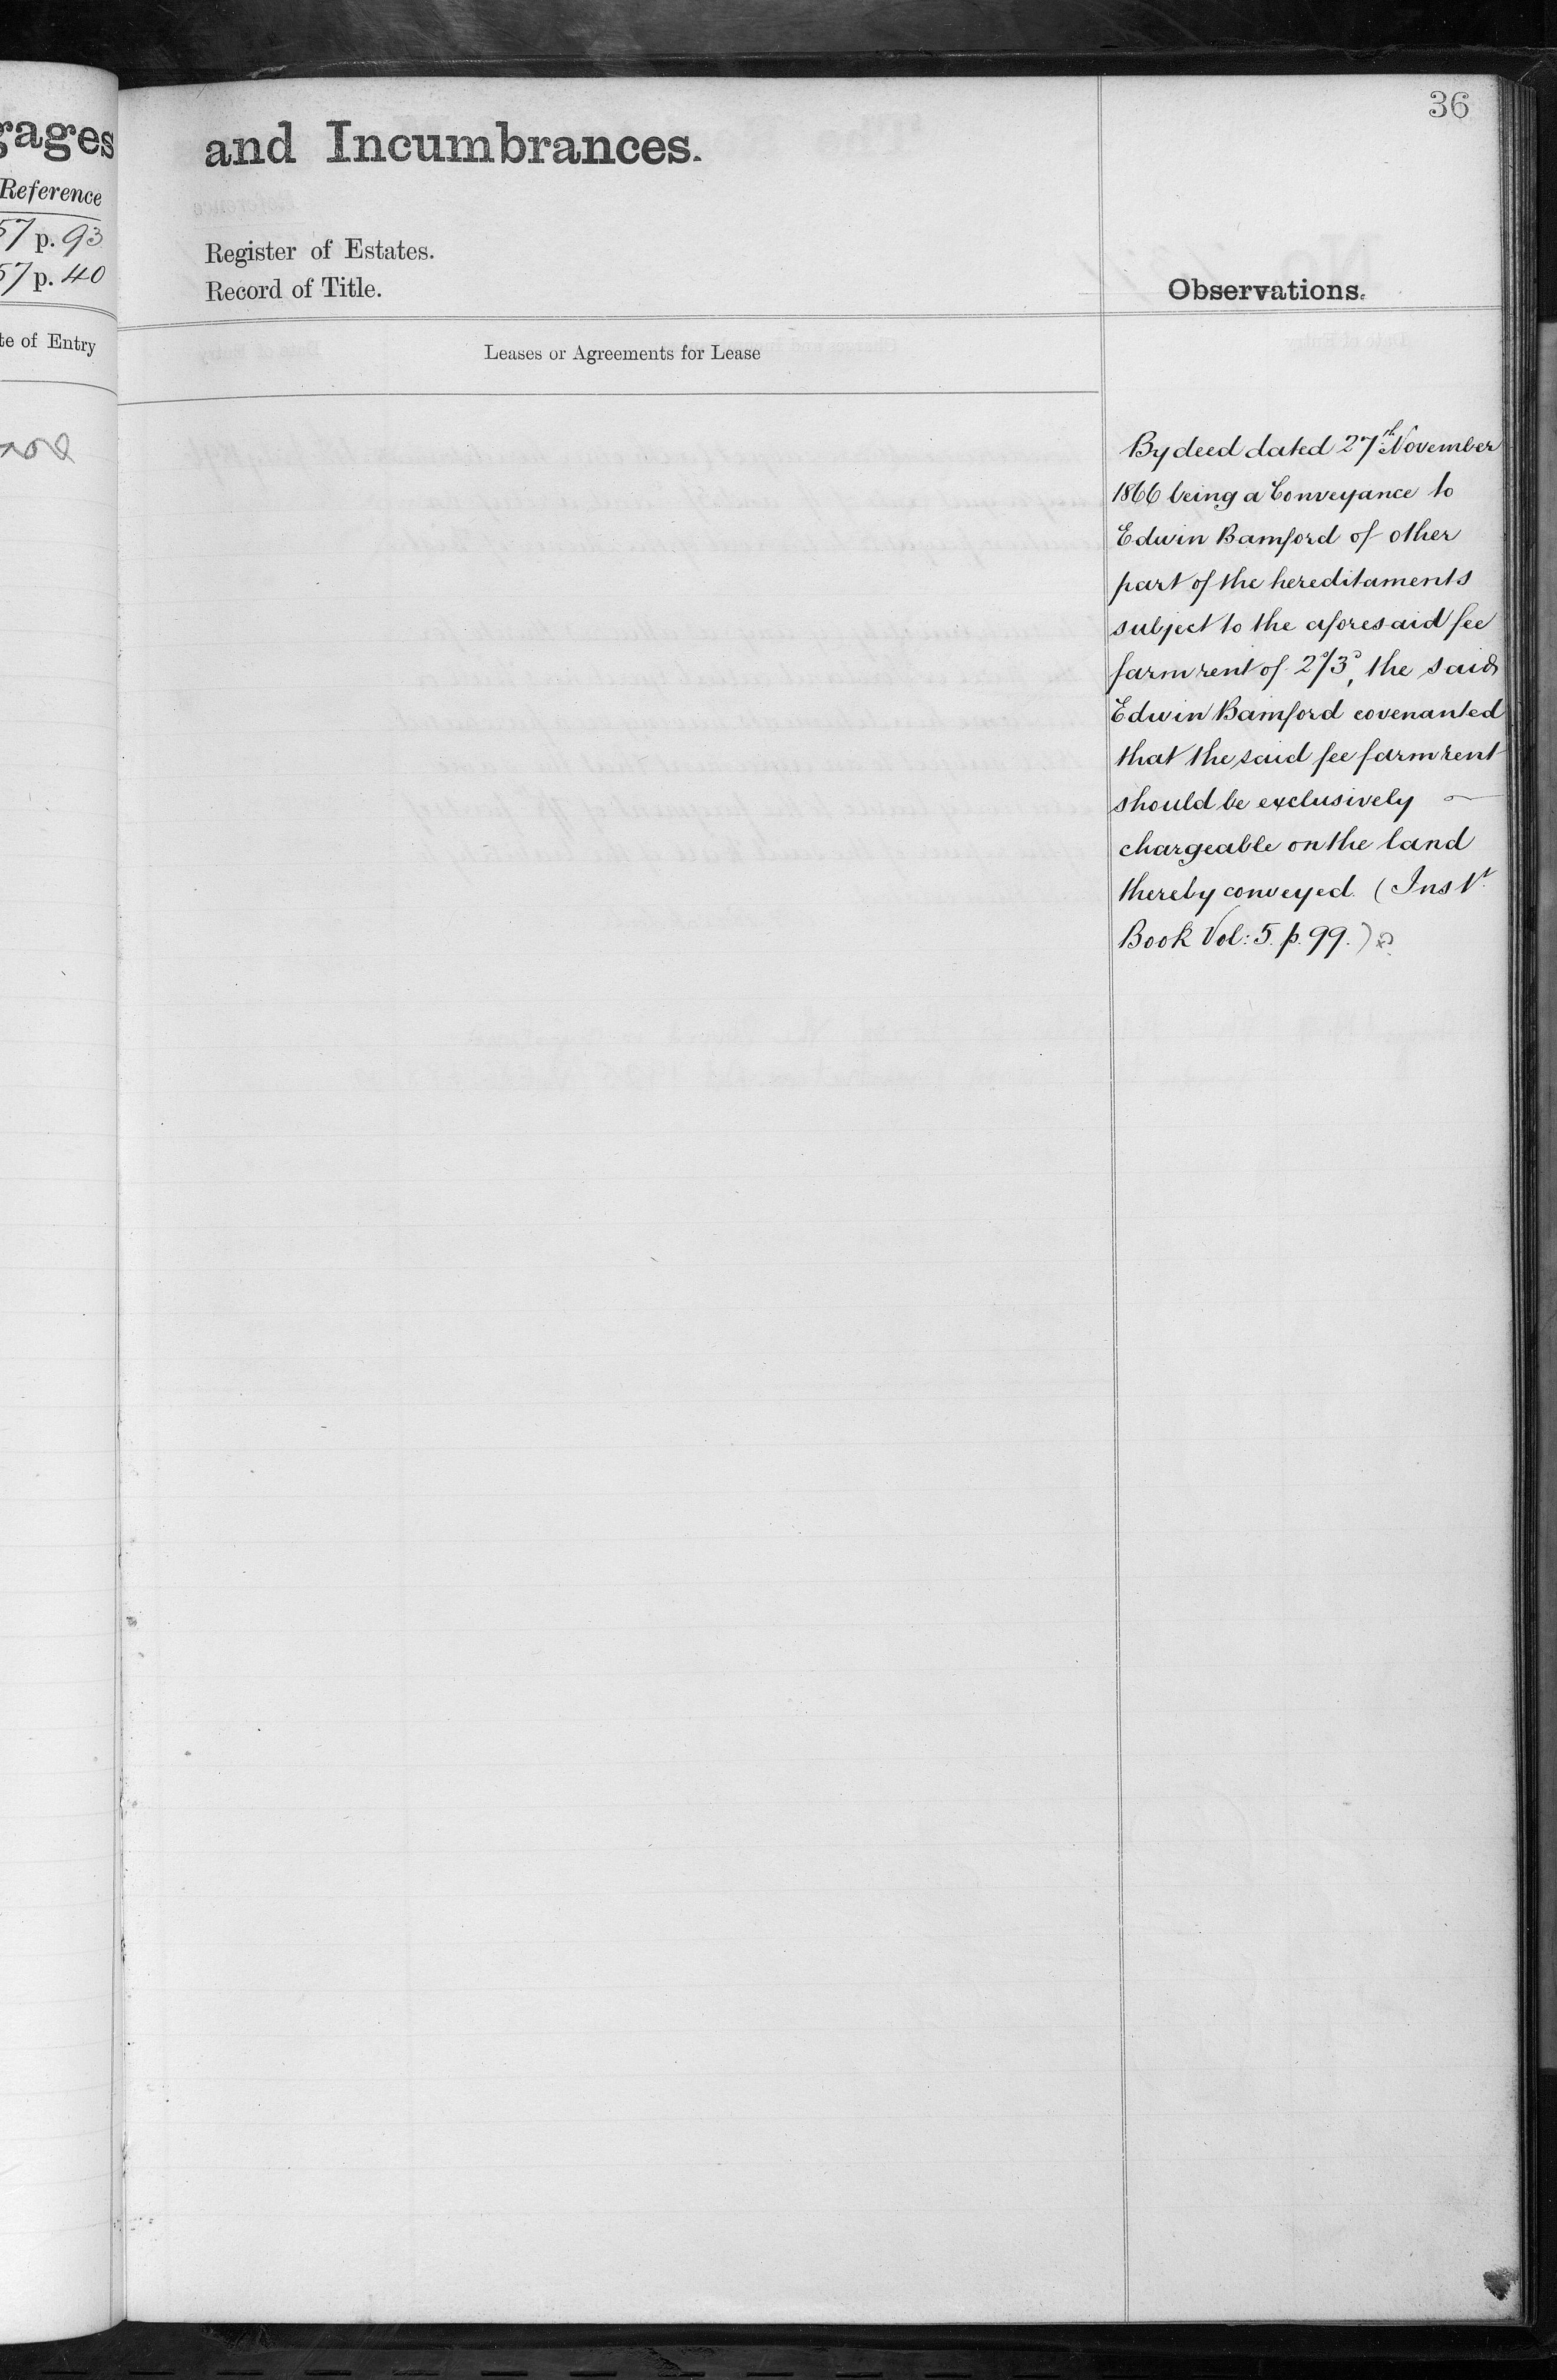 gages
Reference
57 p. 93
57 p. 40
te of Entry
36
and Incumbrances.
Register of Estates.
Record of Title.
Observations.
Leases or Agreements for Lease
By deed dated 27th November
1866 being a Conveyance to
Edwin Bamford of other
part of the hereditaments
subject to the aforesaid fee
farm rent of 2s/3d, the said
Edwin Bamford covenanted
that the said fee farm rent
should be exclusively —
chargeable on the land
thereby conveyed. (Inst.
Book Vol: 5. p. 99.)